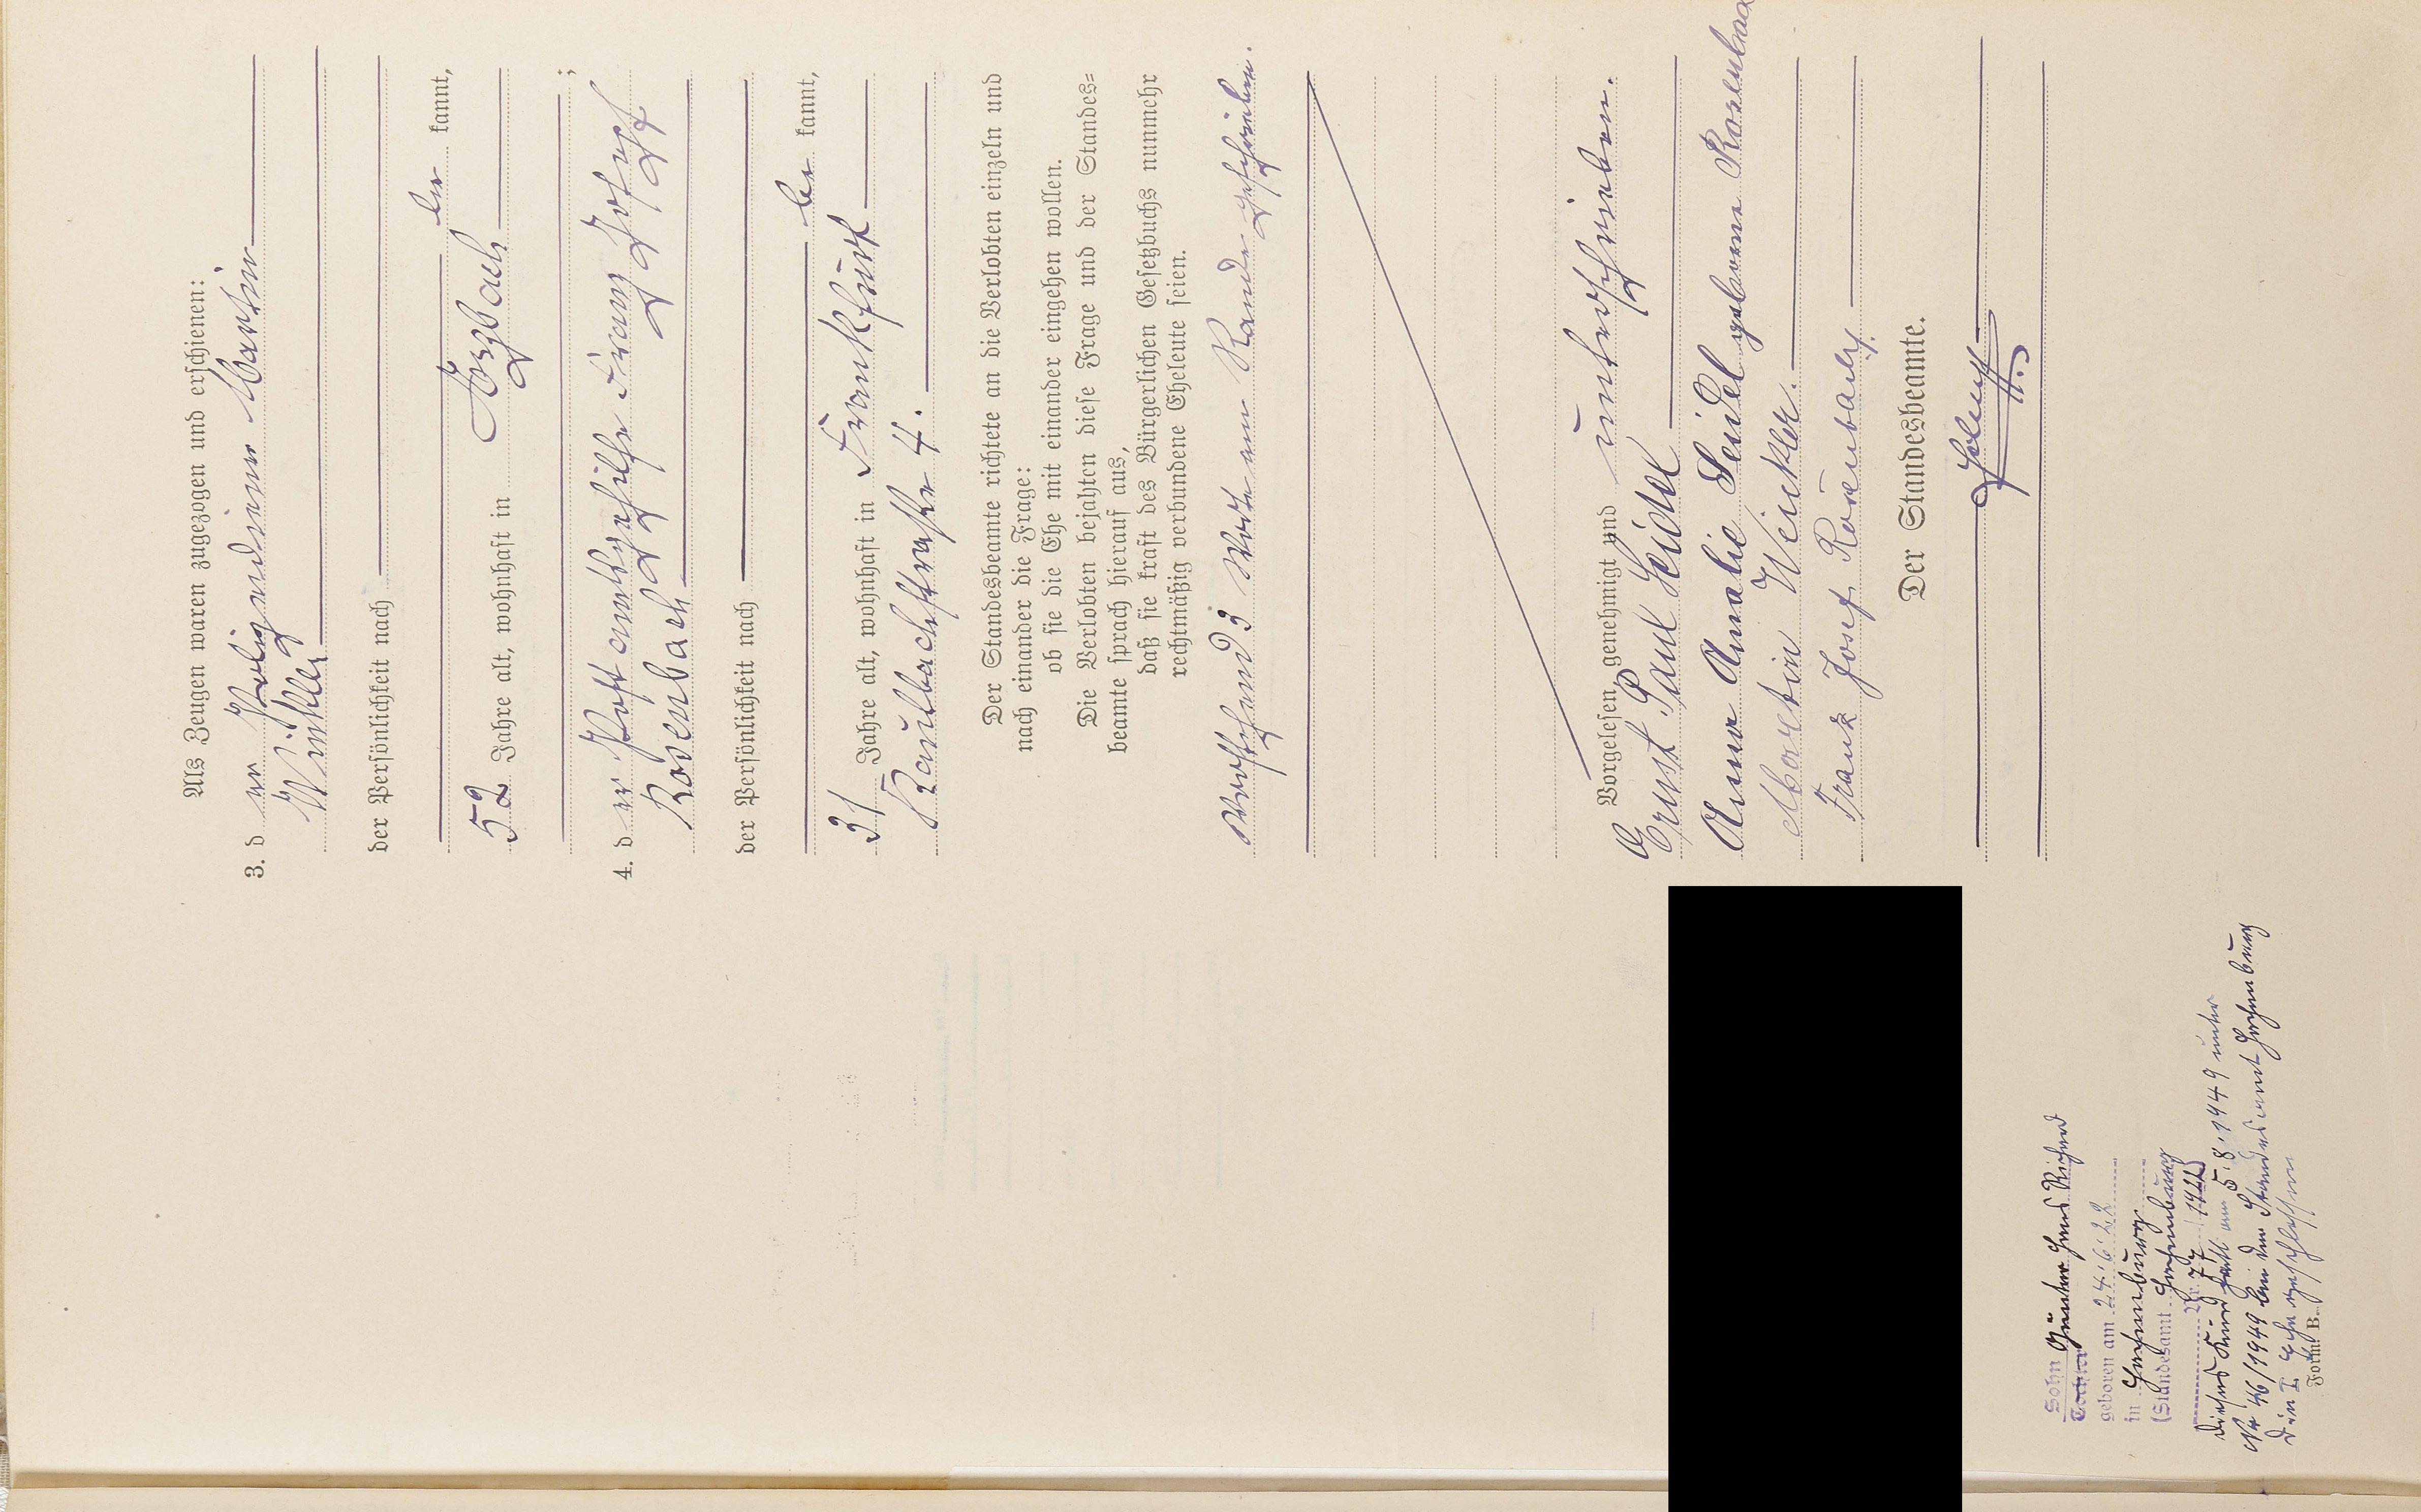 Als Zeugen waren zugezogen und erschienen:
3. d er Polizeidiener Martin
Winkler
der Persönlichkeit nach
be kannt,
52 Jahre alt, wohnhaft in Sszbach
4. d er Postamtsgehilfe Franz Josef
Rosenbach
;
der Persönlichkeit nach
be kannt,
31 Jahre alt, wohnhaft in Frankfurt
Kaulbachstraße 4.
Der Standesbeamte richtete an die Verlobten einzeln und
nach einander die Frage:
ob sie die Ehe mit einander eingehen wollen.
Die Verlobten bejahten diese Frage und der Standes=
beamte sprach hierauf aus,
daß sie kraft des Bürgerlichen Gesetzbuchs nunmehr
rechtmäßig verbundene Eheleute seien.
Vorstehend 3 Worte am Rande geschrieben.
Vorgelesen, genehmigt und unterschrieben.
Ernst Paul Seidel
Anna Amalie Seidel geborene Rosenbach
Martin Winkler.
Franz Josef Rosenbach
Der Standesbeamte.
Sohn Günter Hans Richard
Tochter
geboren am 24.6.22
in
(Standesamt
Nr. 77 1922)
dieses Kind hat am 5.8.1949 unter
Nr 46/1949 bei dem Standesamt
die I. Ehe geschlossen
Form. B.